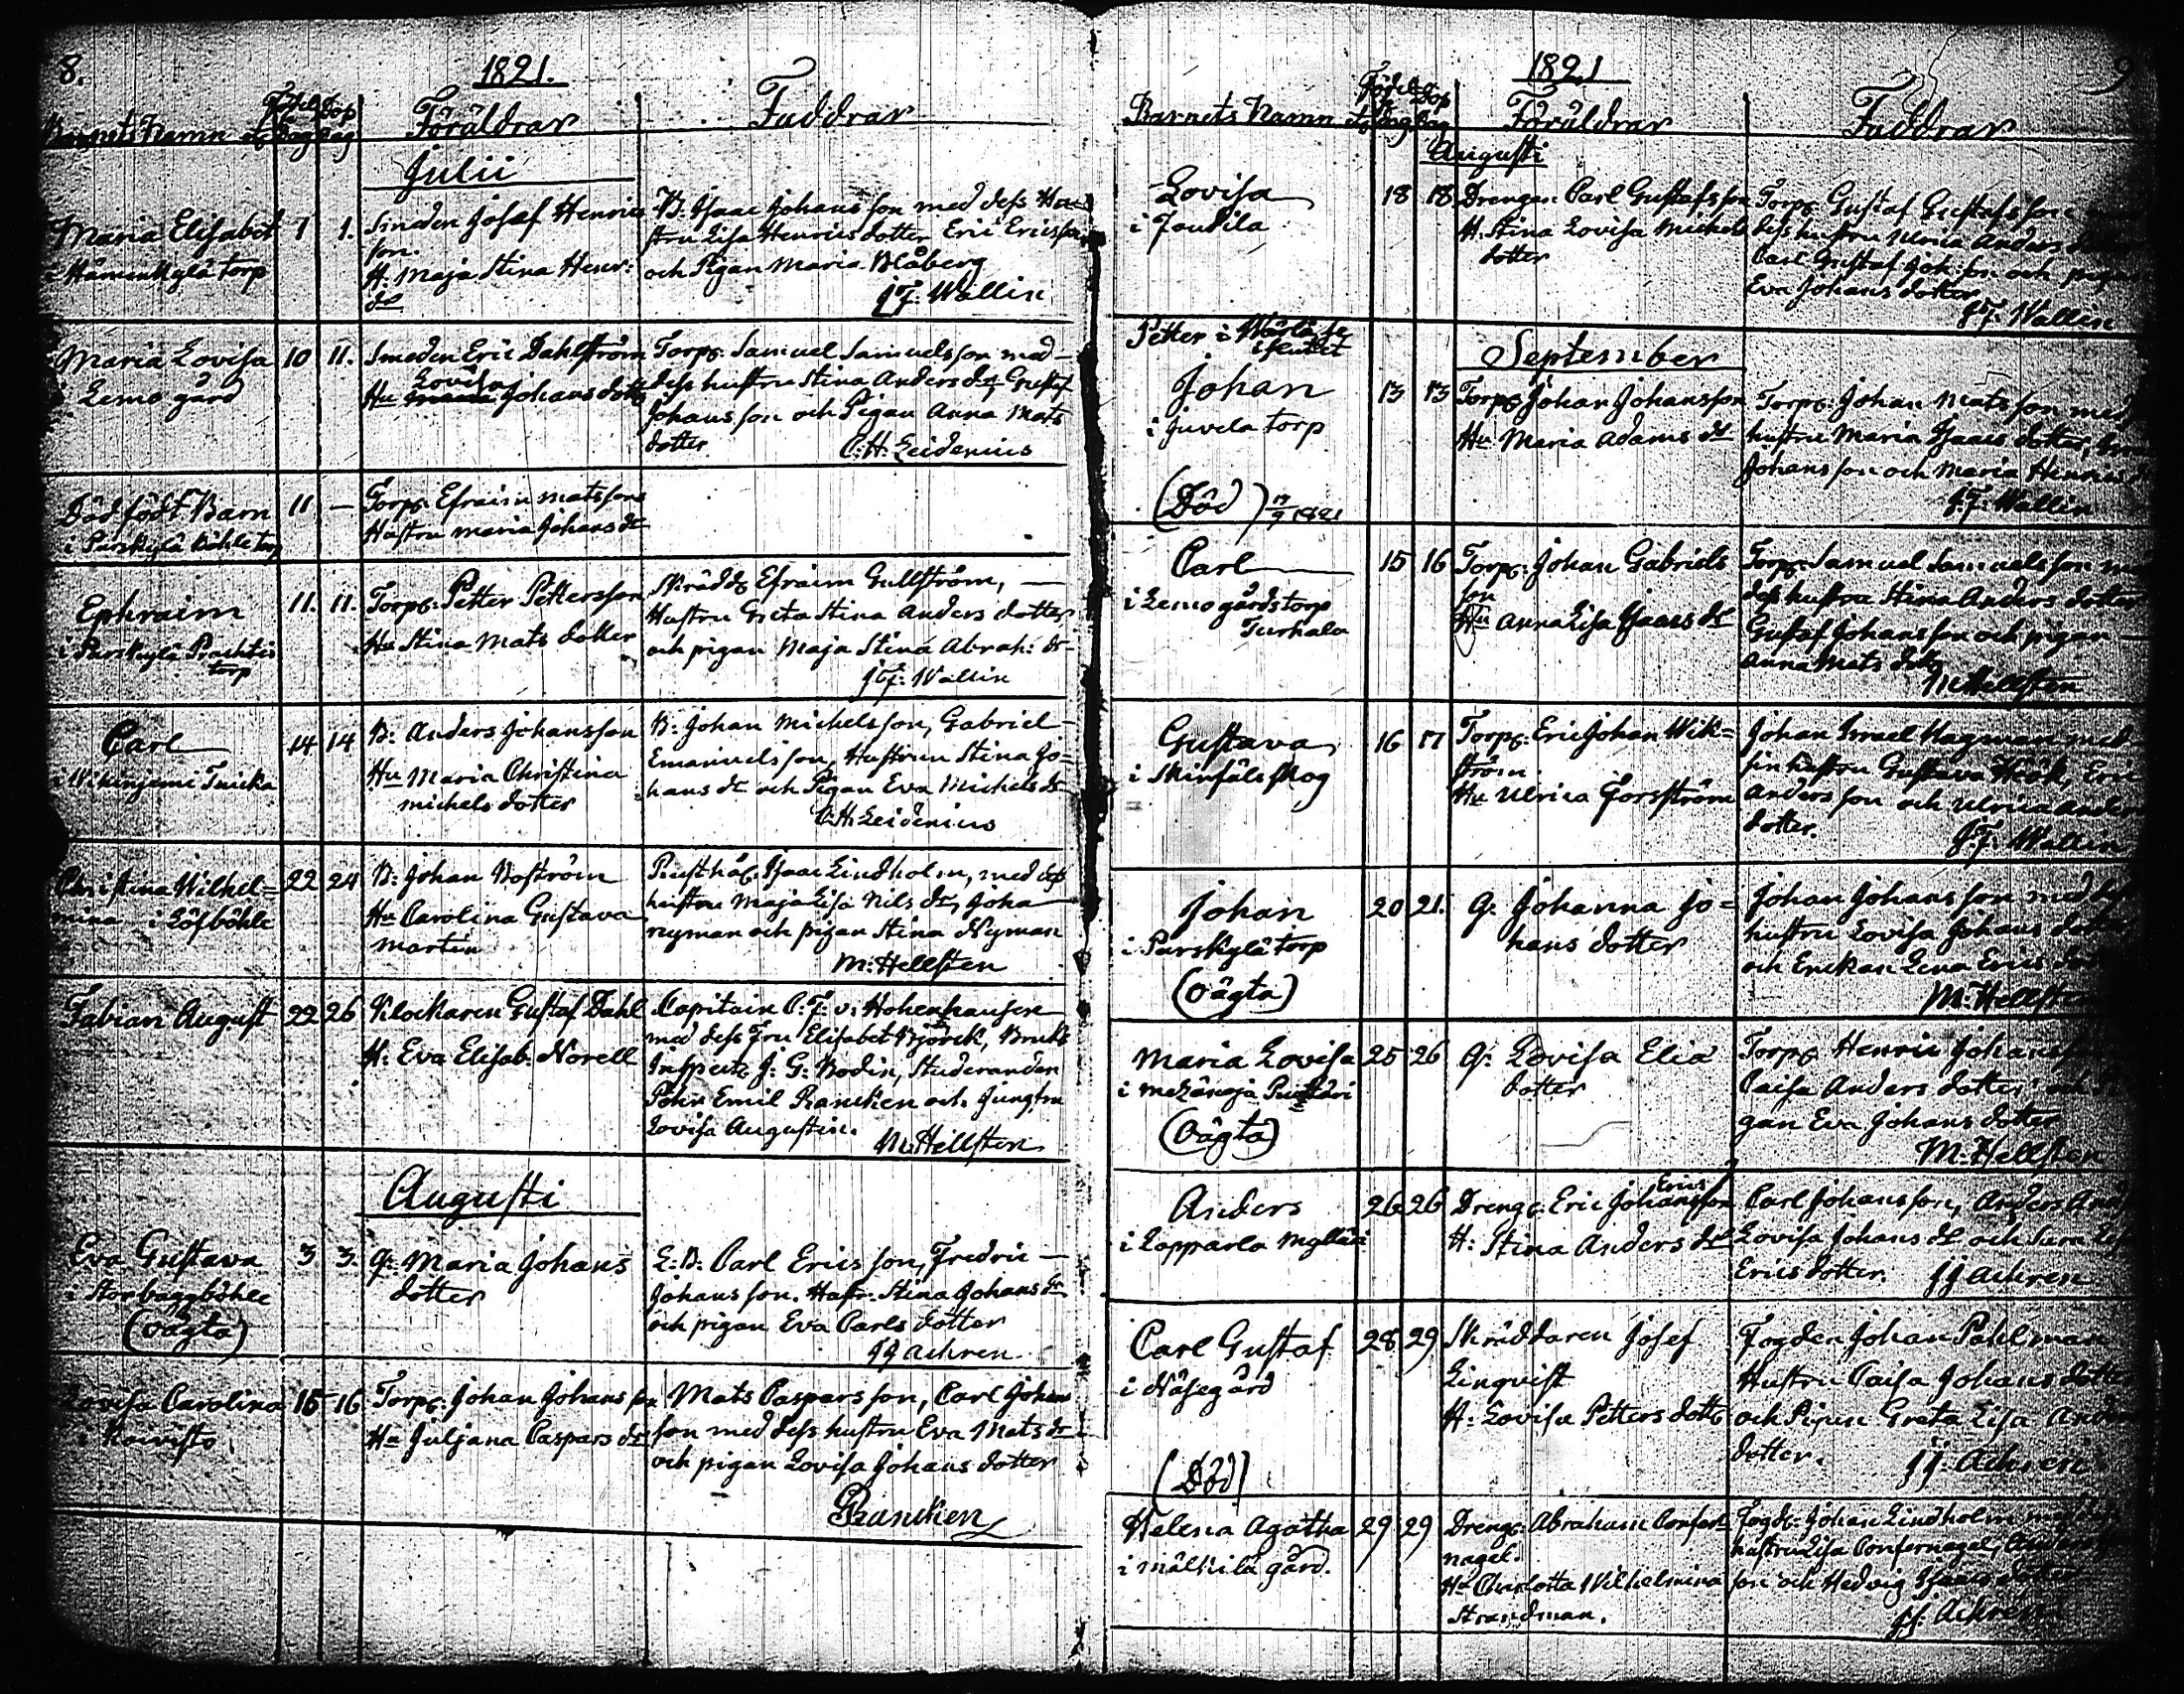 8.
1821.
Barnets Namn etc
Födelse Dag
Dop dag
Föräldrar
Faddrar
Julii
Maria Elisabet
i Hämenkylä torp
1
1.
Smeden Josef Henrics
son.
H. Maja Stina Henr:
dr
B. Isaac Johansson med dess Hu
stru Lisa Henrics dotter Eric Ericsson
och Pigan Maria Blåberg
J.F. Wallin
Maria Lovisa
i Lemo gård
10
11.
Smeden Eric Dahlström
Lovisa
Hu Johans dottr
Torp. Samuel Samuelsson med
dess hustru Stina Anders dr Gustaf
Johansson och Pigan Anna Mats
dotter
C.H. Leidenius
Död född Barn
i Parskylä böhle torp
11
—
Torp. Efraim Matssons
Hustru Maria Johans dr
Ephraim
i Parskylä Prachtis
torp
11.
11.
Torp. Petter Pettersson
Hu Stina Mats dotter
Skrädd. Efraim Gullström, —
Hustru Greta Stina Anders dotter
och pigan Maja Stina Abrah: dr
J.F. Wallin
Carl
14
14
B: Anders Johansson
Hu Maria Christina
Michels dotter
B: Johan Michelsson, Gabriel
Emanuelsson, Hustrun Stina Jo=
hans dr och Pigan Eva Michels dr
C.H. Leidenius
Christina Wilhel=
mina i Löfböhle
22
24
B: Johan Boström
Hu Carolina Gustava
Martin
Rusthål. Isaac Lindholm, med dess
hustru Maja Lisa Nils dr, Joha
Nyman och pigan Stina Nyman
M: Hellsten
Fabian August
22
26
Klockaren Gustaf Dahl
H: Eva Elisab. Norell
Capitain C.F. v. Hohenhausen
med dess Fru Elisabet Björck, Bruks
Inspect. J: G: Bodin, Studeranden
Pehr Emil Rancken och Jungfru
Lovisa Augustin.
M: Hellsten
Augusti
Eva Gustava
i Storbaggböhle
(oägta)
3
3.
Q: Maria Johans
dotter
L: B: Carl Ericsson, Fredric —
Johansson. Hustr. Stina Johans dr
och pigan Eva Carls dotter
JJ Achren
Lovisa Carolina
i Koivisto
15
16
Torp. Johan Johansson
Hu Juljana Caspars dr
Mats Caspersson, Carl Johan
son med dess hustru Eva Mats dr
och pigan Lovisa Johans dotter
Rancken
1821
9
Barnets Namn etc
Födelse Dag
Dop Dag
Föräldrar
Faddrar
Augusti
Lovisa
i Joukila
18
18
Drengen Carl Gustafsson
H. Stina Lovisa Michels
dotter
Torp. Gustaf Gustafsson
dess hustru Ulrica Anders
Carl Gustaf Joh:son och pigan
Eva Johans dotter
J.F. Wallin
Petter i
September
Johan
i Juvela torp
(Död) 17/9 1821
13
13
Torp. Johan Johansson
Hu Maria Adams dr
Torp. Johan Matsson med
hustru Maria Isaacs dotter,
Johansson och Maria Henrics
J.F. Wallin
Carl
i Lemo gårds torp
Turhala
15
16
Torp. Johan Gabriels
son
Hu Anna Lisa Isaacs dr
Torp. Samuel Samuelsson
dess hustru Stina Anders dotter
Gustaf Johansson och pigan —
Anna Mats dottr
M Hellsten
Gustava
i Skinfälsskog
16
17
Torp. Eric Johan Wik=
ström
Hu Ulrica Forsström
Johan Israel Hagman med
sin hustru Gustava Höök, Eric
Andersson och Ulrica Anders
dotter.
J.F. Wallin
Johan
i Parskylä torp
(oägta)
20
21.
Q. Johanna Jo=
hans dotter
Johan Johansson med
hustru Lovisa Johans dotter
och Enckan Lena Erics
M. Hellsten
Maria Lovisa
(Oägta)
25
26
Q. Lovisa Elia
dotter
Torp. Henric Johansson
Caisa Anders dotter och Pi
gan Eva Johans dotter
M. Hellsten
Anders
i Lopparla Mylläri
26
26
Erics
Dreng. Eric Johansson
H: Stina Anders dr
Carl Johansson, Anders
Lovisa Johans dr och Sara
Erics dotter. JJ Achren
Carl Gustaf
i Näsegård
(Död)
28
29
Skräddaren Josef
Linqvist
H: Lovisa Petters dottr
Fogden Johan Pahlman
Hustru Caisa Johans dotter
och Pigan Greta Lisa Anders
dotter. JJ. Achren
Helena Agatha
i Mälkilä gård.
29
29
Dreng. Abraham Confer
nagel.
Hu Charlotta Wilhelmina
Strandman.
Fogd. Johan Lindholm med
hustru Lisa Confernagel, Anders
son och Hedvig Isaacs dotter
JJ. Achren